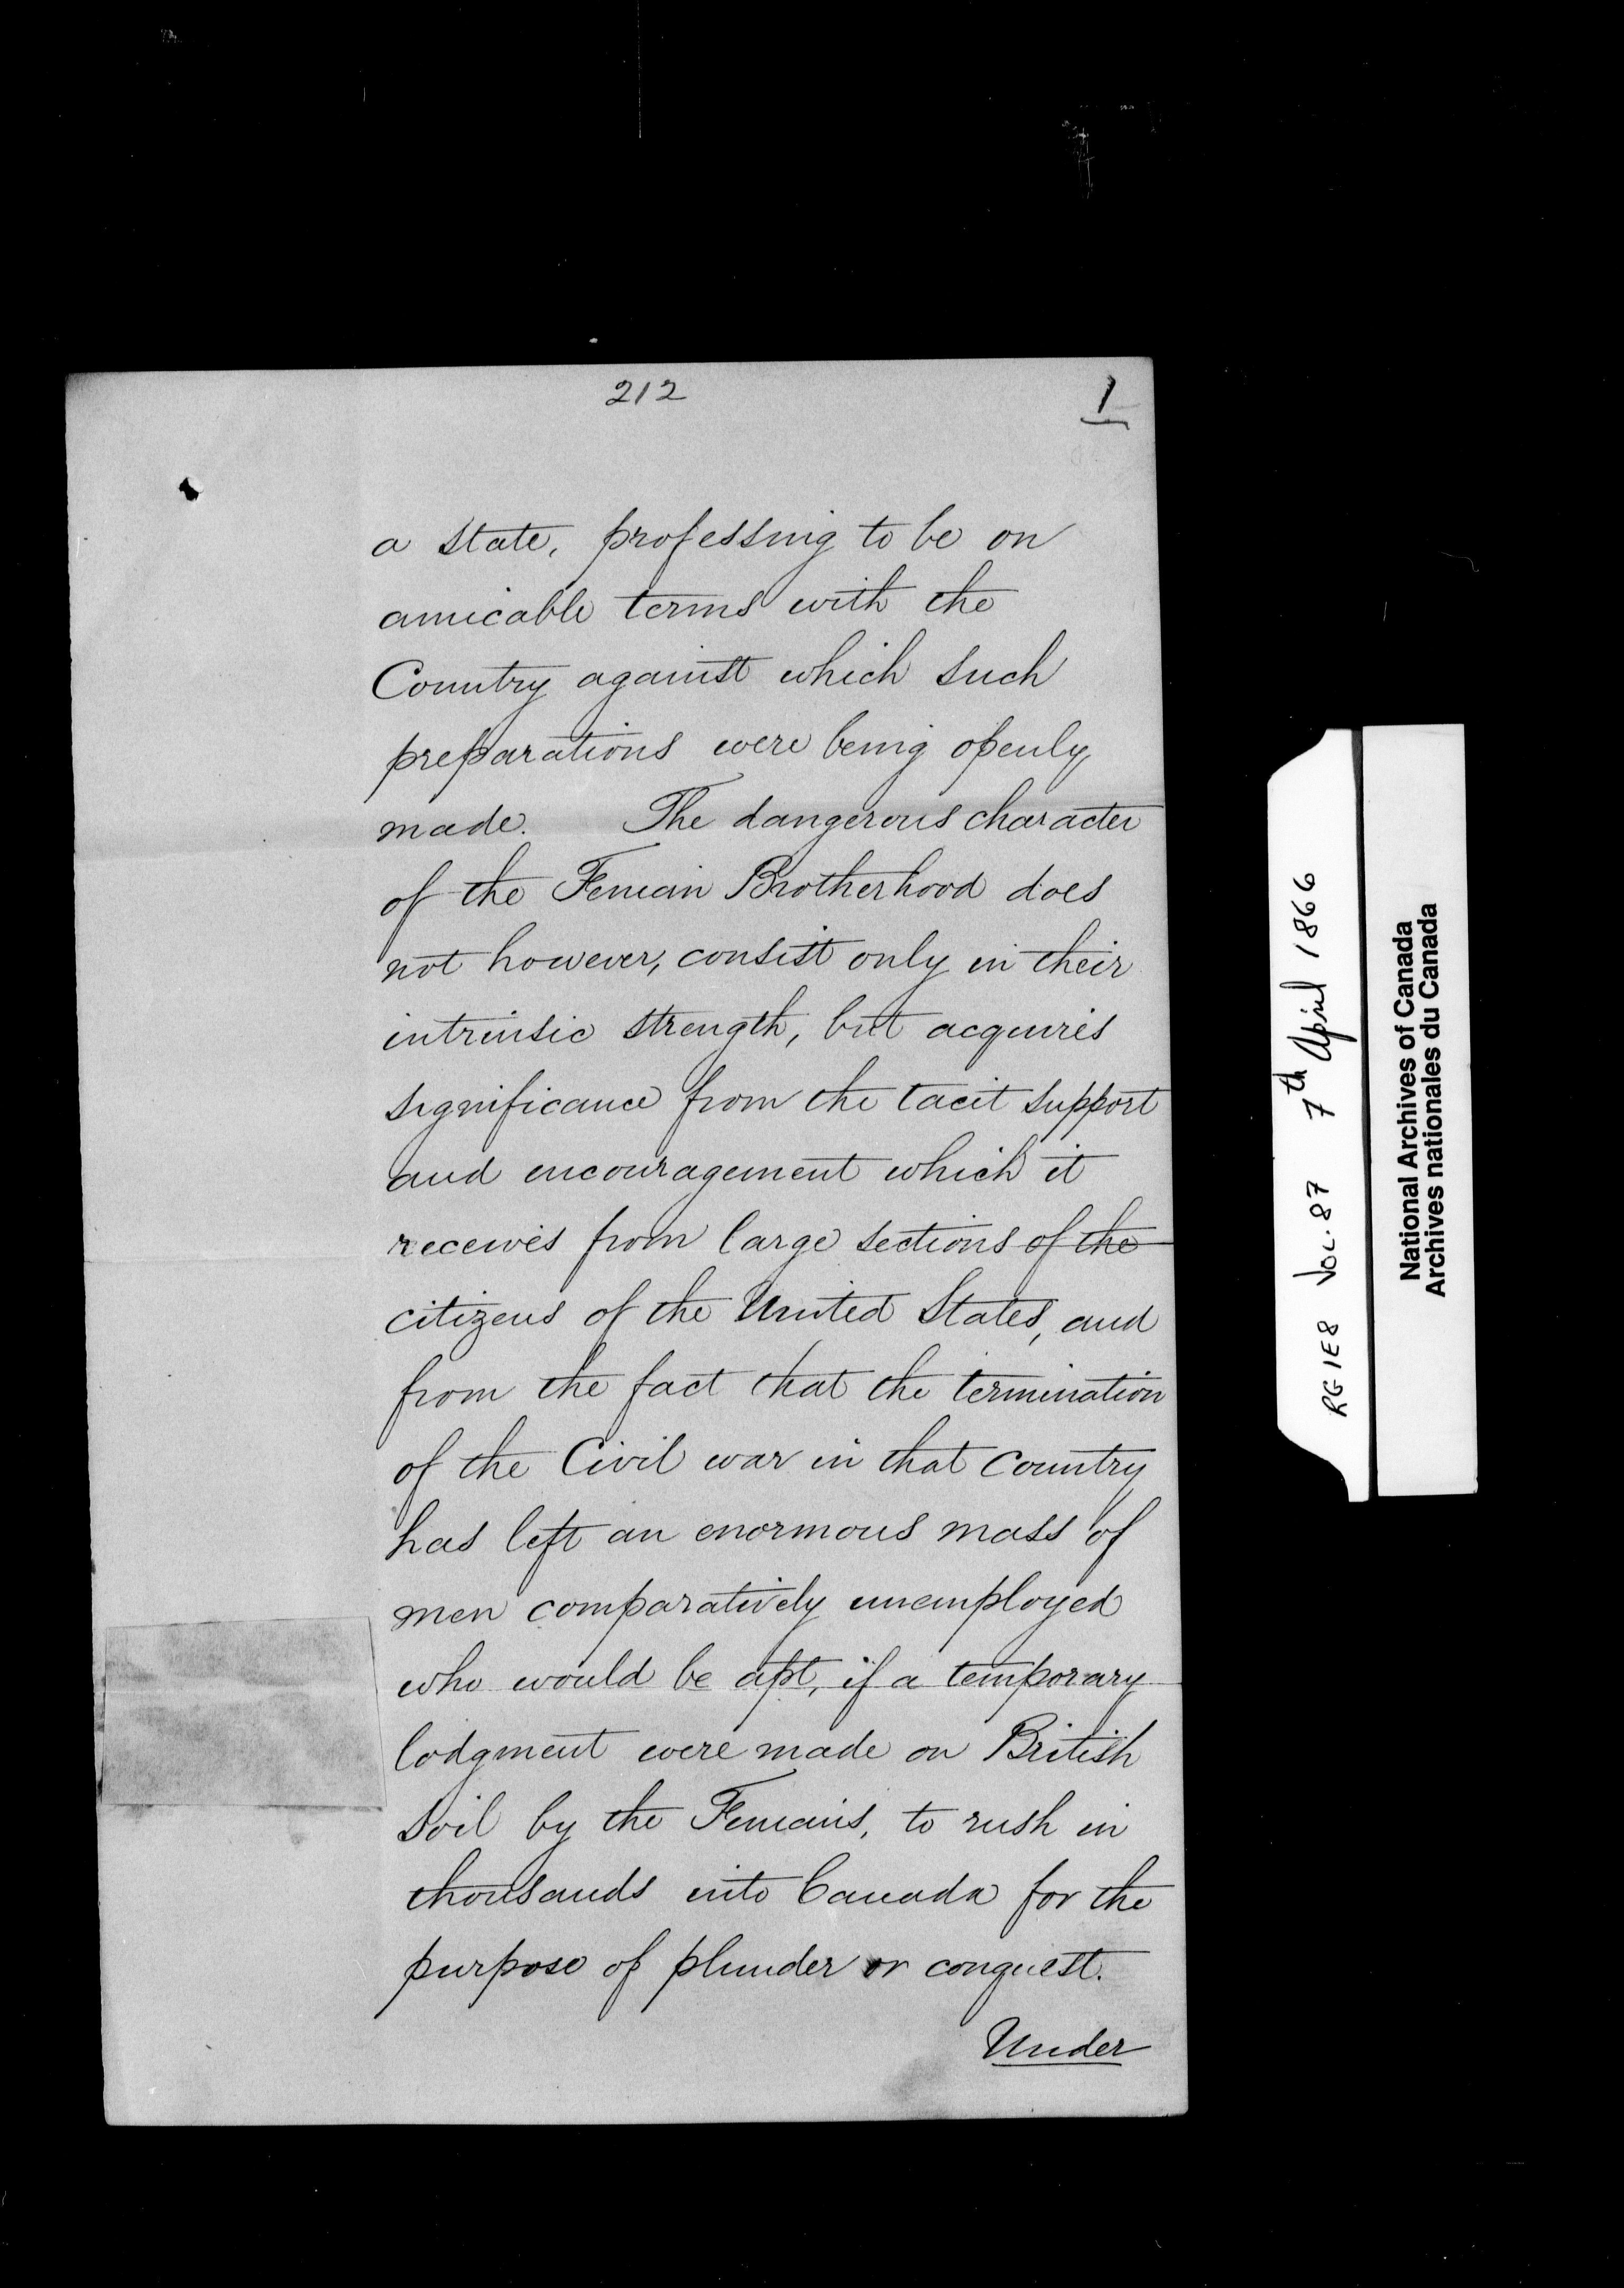 212
1
a state, professing to be on
amicable terms with the
Country against which such
preparations were being openly
made. The dangerous character
of the Fenian Brotherhood does
not however, consist only in their
intrinsic strength, but acquires
significance from the tacit support
and encouragement which it
receives from large sections of the
citizens of the United States, and
from the fact that the termination
of the Civil war in that Country
has left an enormous mass of
men comparatively unemployed
who would be apt, if a temporary
lodgment were made on British
Soil by the Fenians, to rush in
thousands into Canada for the
purpose of plunder or conquest.
Under
RG1E8 VOL. 87 7th April 1866
National Archives of Canada
Archives nationales du Canada